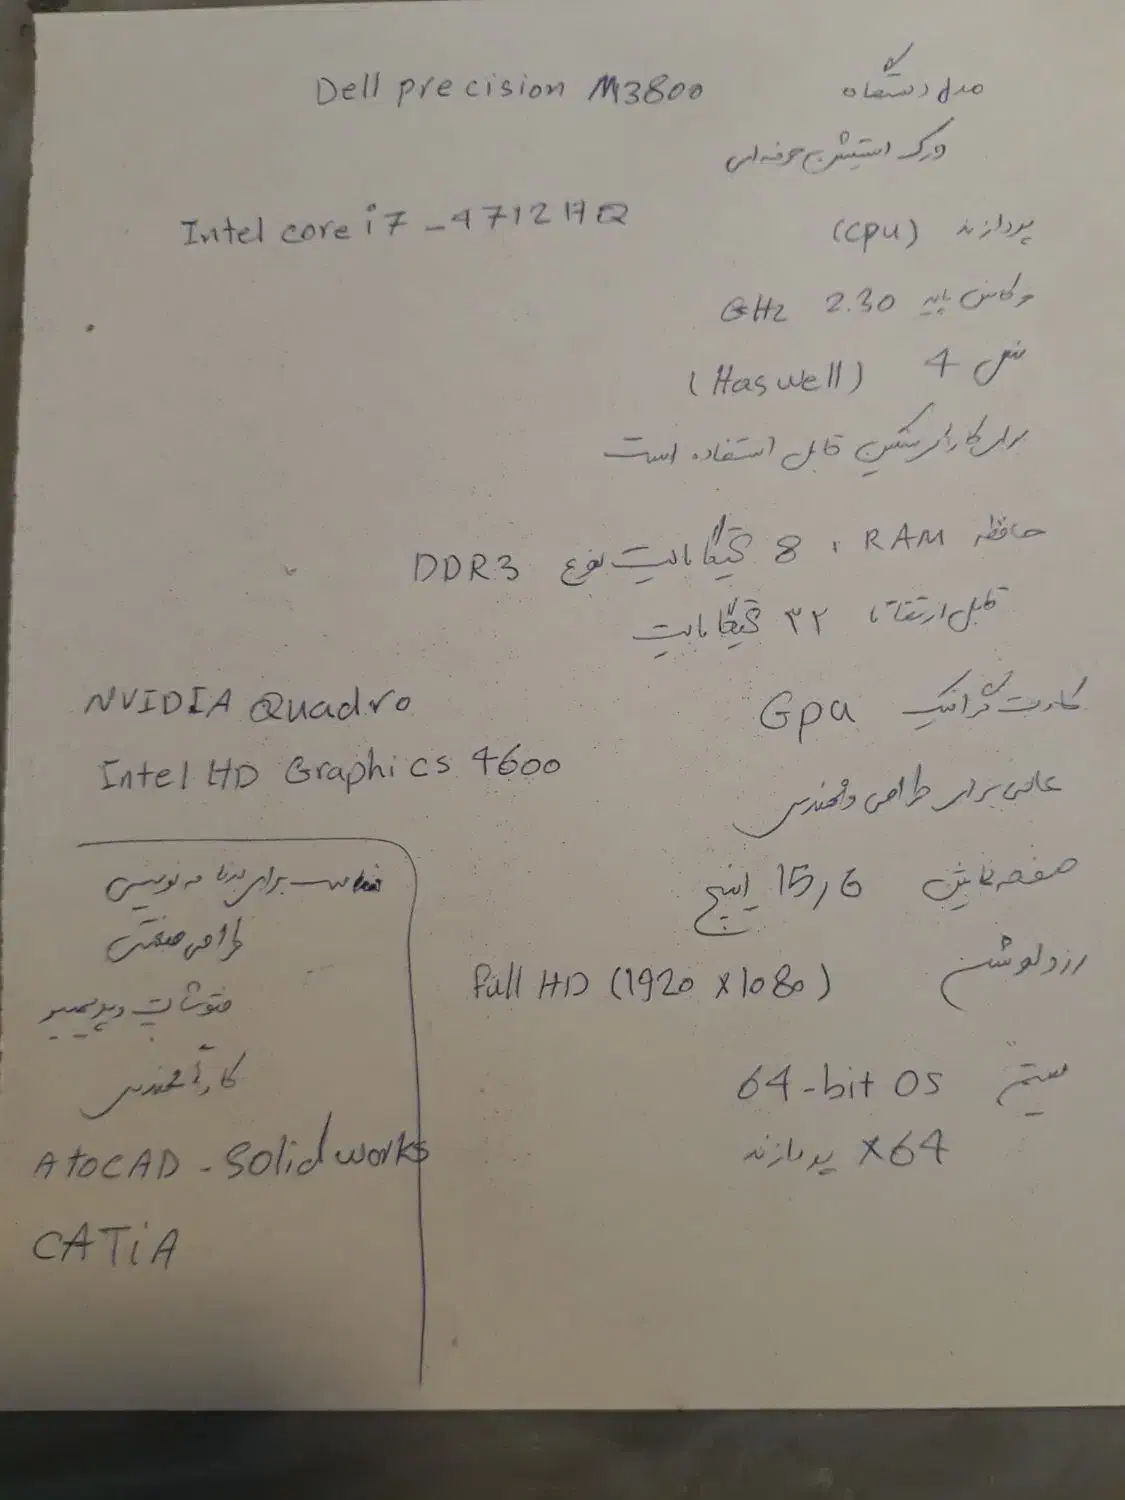 مدل دستگاه Dell precision M3800
ورک استیشن حرفه‌ای
پردازنده (cpu) Intel core i7 - 4712HQ
فرکانس پایه 2.30 GHz
نسل 4 (Haswell)
برای کارهای سنگین قابل استفاده است
حافظه RAM، 8 گیگابایت نوع DDR3
قابل ارتقا تا ۳۲ گیگابایت
کارت گرافیک Gpu NVIDIA Quadro
Intel HD Graphics 4600
عالی برای طراحی و مهندسی
صفحه نمایش 15,6 اینچ
رزولوشن full HD (1920 x 1080)
سیستم 64-bit OS
پردازنده x64
مناسب برای برنامه نویسی
طراحی صنعتی
فتوشاپ و پریمیر
کارهای مهندسی
AtoCAD - Solid works
CATiA